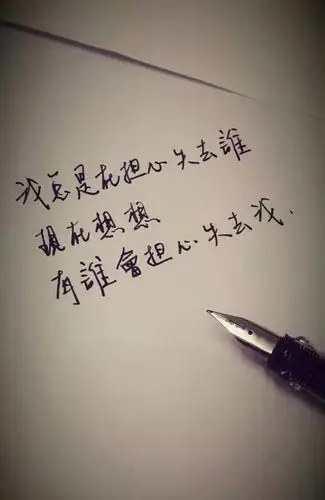 我總是在担心失去誰
現在想想
有誰會担心失去我.